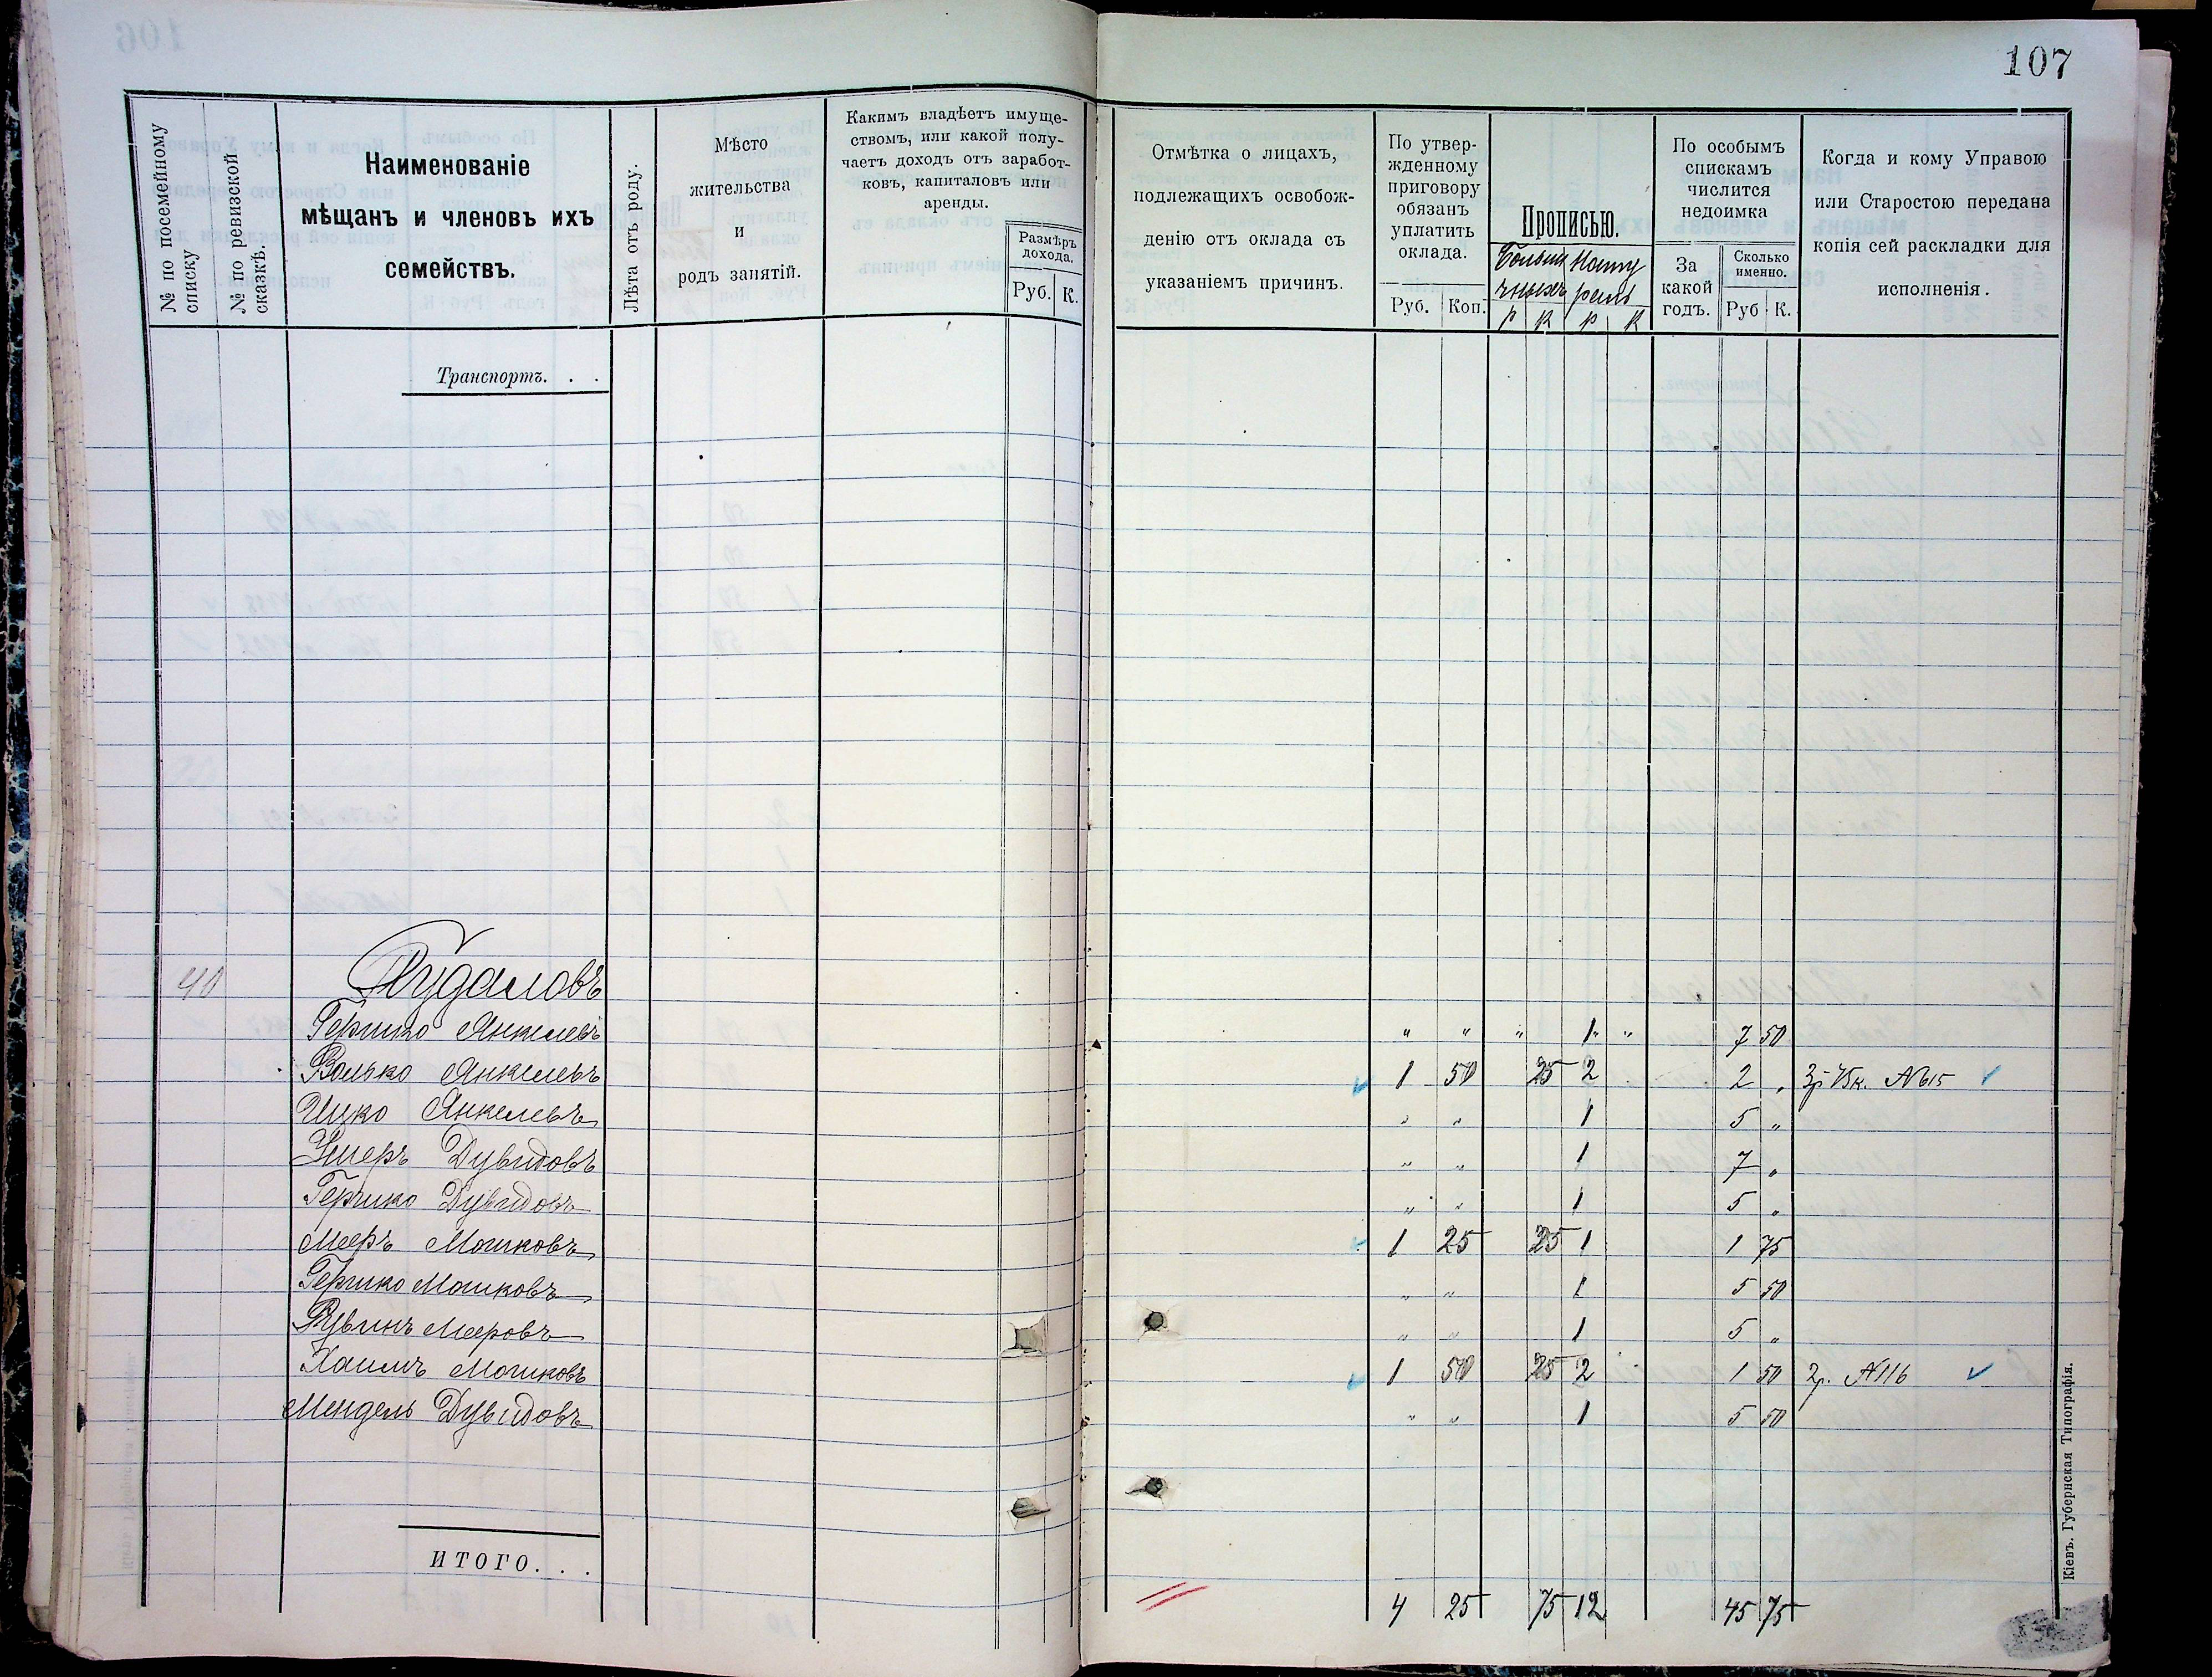 107
№ по посемейному списку
№ по ревизской сказкѣ.
Наименованіе
мѣщанъ и членовъ ихъ
семействъ.
Лѣта отъ роду.
Мѣсто
жительства
и
родъ занятій.
Какимъ владѣетъ имуще-
ствомъ, или какой полу-
чаетъ доходъ отъ заработ-
ковъ, капиталовъ или
аренды.
Размѣръ
дохода.
Руб. К.
Отмѣтка о лицахъ,
подлежащихъ освобож-
денію отъ оклада съ
указаніемъ причинъ.
По утвер-
жденному
приговору
обязанъ
уплатить
оклада.
Руб. Коп.
Прописью.
р к р к
По особымъ
спискамъ
числится
недоимка
За
какой
годъ.
Сколько
именно.
Руб К.
Когда и кому Управою
или Старостою передана
копія сей раскладки для
исполненія.
Транспортъ. . .
40 Рудаловъ
Гершко Янкелевъ " " " 1 " " 7 50
Волько Янкелевъ 1 50 25 2 2 " 3р 75к. №615
Ицко Янкелевъ " " 1 5 "
Умеръ Дувидовъ " " 1 7 "
Гершко Дувидовъ " " 1 5 "
Мееръ Мошковъ 1 25 25 1 1 75
Гершко Мошковъ " " 1 5 50
Рувинъ Мееровъ " " 1 5 "
Хаимъ Мошковъ 1 50 25 2 1 50 2р. №116
Мендель Дувидовъ " " 1 5 50
ИТОГО. . .
4 25 75 12 45 75
Кіевъ. Губернская Типографія.